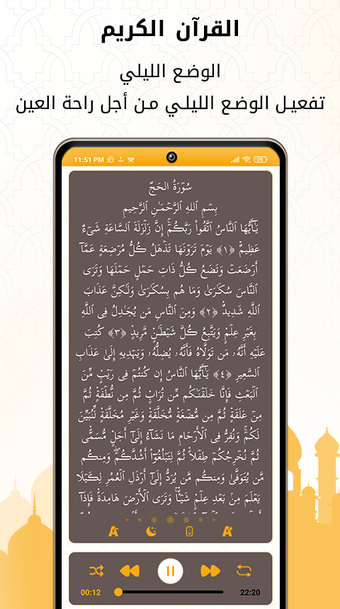 القرآن الكريم
الوضع الليلي
تفعيل الوضع الليلي من أجل راحة العين
11:51 PM
سُورَةُ الحَجِّ
بِسْمِ اللهِ الرَّحْمَٰنِ الرَّحِيمِ
يَٰٓأَيُّهَا ٱلنَّاسُ ٱتَّقُوا۟ رَبَّكُمْ ۚ إِنَّ زَلْزَلَةَ ٱلسَّاعَةِ شَىْءٌ
عَظِيمٌ ﴿١﴾ يَوْمَ تَرَوْنَهَا تَذْهَلُ كُلُّ مُرْضِعَةٍ عَمَّآ
أَرْضَعَتْ وَتَضَعُ كُلُّ ذَاتِ حَمْلٍ حَمْلَهَا وَتَرَى
ٱلنَّاسَ سُكَٰرَىٰ وَمَا هُم بِسُكَٰرَىٰ وَلَٰكِنَّ عَذَابَ
ٱللَّهِ شَدِيدٌ ﴿٢﴾ وَمِنَ ٱلنَّاسِ مَن يُجَٰدِلُ فِى ٱللَّهِ
بِغَيْرِ عِلْمٍ وَيَتَّبِعُ كُلَّ شَيْطَٰنٍ مَّرِيدٍ ﴿٣﴾ كُتِبَ
عَلَيْهِ أَنَّهُۥ مَن تَوَلَّاهُ فَأَنَّهُۥ يُضِلُّهُۥ وَيَهْدِيهِ إِلَىٰ عَذَابِ
ٱلسَّعِيرِ ﴿٤﴾ يَٰٓأَيُّهَا ٱلنَّاسُ إِن كُنتُمْ فِى رَيْبٍ مِّنَ
ٱلْبَعْثِ فَإِنَّا خَلَقْنَٰكُم مِّن تُرَابٍ ثُمَّ مِن نُّطْفَةٍ ثُمَّ
مِنْ عَلَقَةٍ ثُمَّ مِن مُّضْغَةٍ مُّخَلَّقَةٍ وَغَيْرِ مُخَلَّقَةٍ لِّنُبَيِّنَ
لَكُمْ ۚ وَنُقِرُّ فِى ٱلْأَرْحَامِ مَا نَشَآءُ إِلَىٰٓ أَجَلٍ مُّسَمًّى
ثُمَّ نُخْرِجُكُمْ طِفْلًا ثُمَّ لِتَبْلُغُوٓا۟ أَشُدَّكُمْ ۖ وَمِنكُم
مَّن يُتَوَفَّىٰ وَمِنكُم مَّن يُرَدُّ إِلَىٰٓ أَرْذَلِ ٱلْعُمُرِ لِكَيْلَا
يَعْلَمَ مِنۢ بَعْدِ عِلْمٍ شَيْـًٔا ۚ وَتَرَى ٱلْأَرْضَ هَامِدَةً فَإِذَآ
00:12
22:20